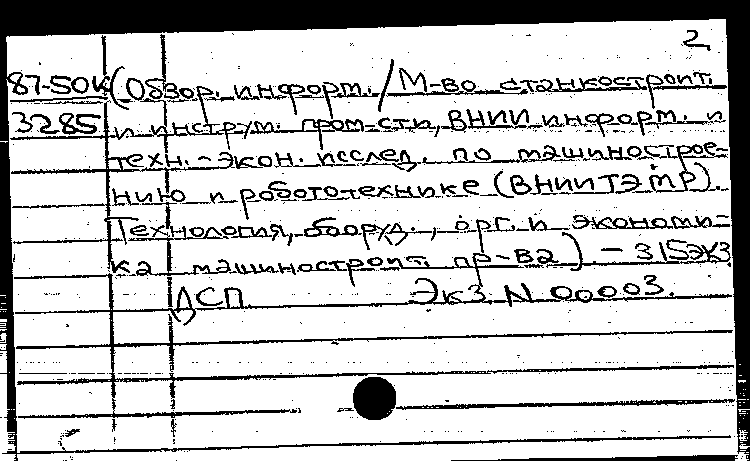 2
87-50к (Обзор. информ. / М-во станкостроит.
3285 и инструм. пром-сти, ВНИИ информ. и
техн.-экон. исслед. по машинострое-
нию и робототехнике (ВНИИТЭМР).
Технология, оборуд., орг. и экономи-
ка машиностроит. пр-ва). - 315экз
ДСП Экз. N 00003.